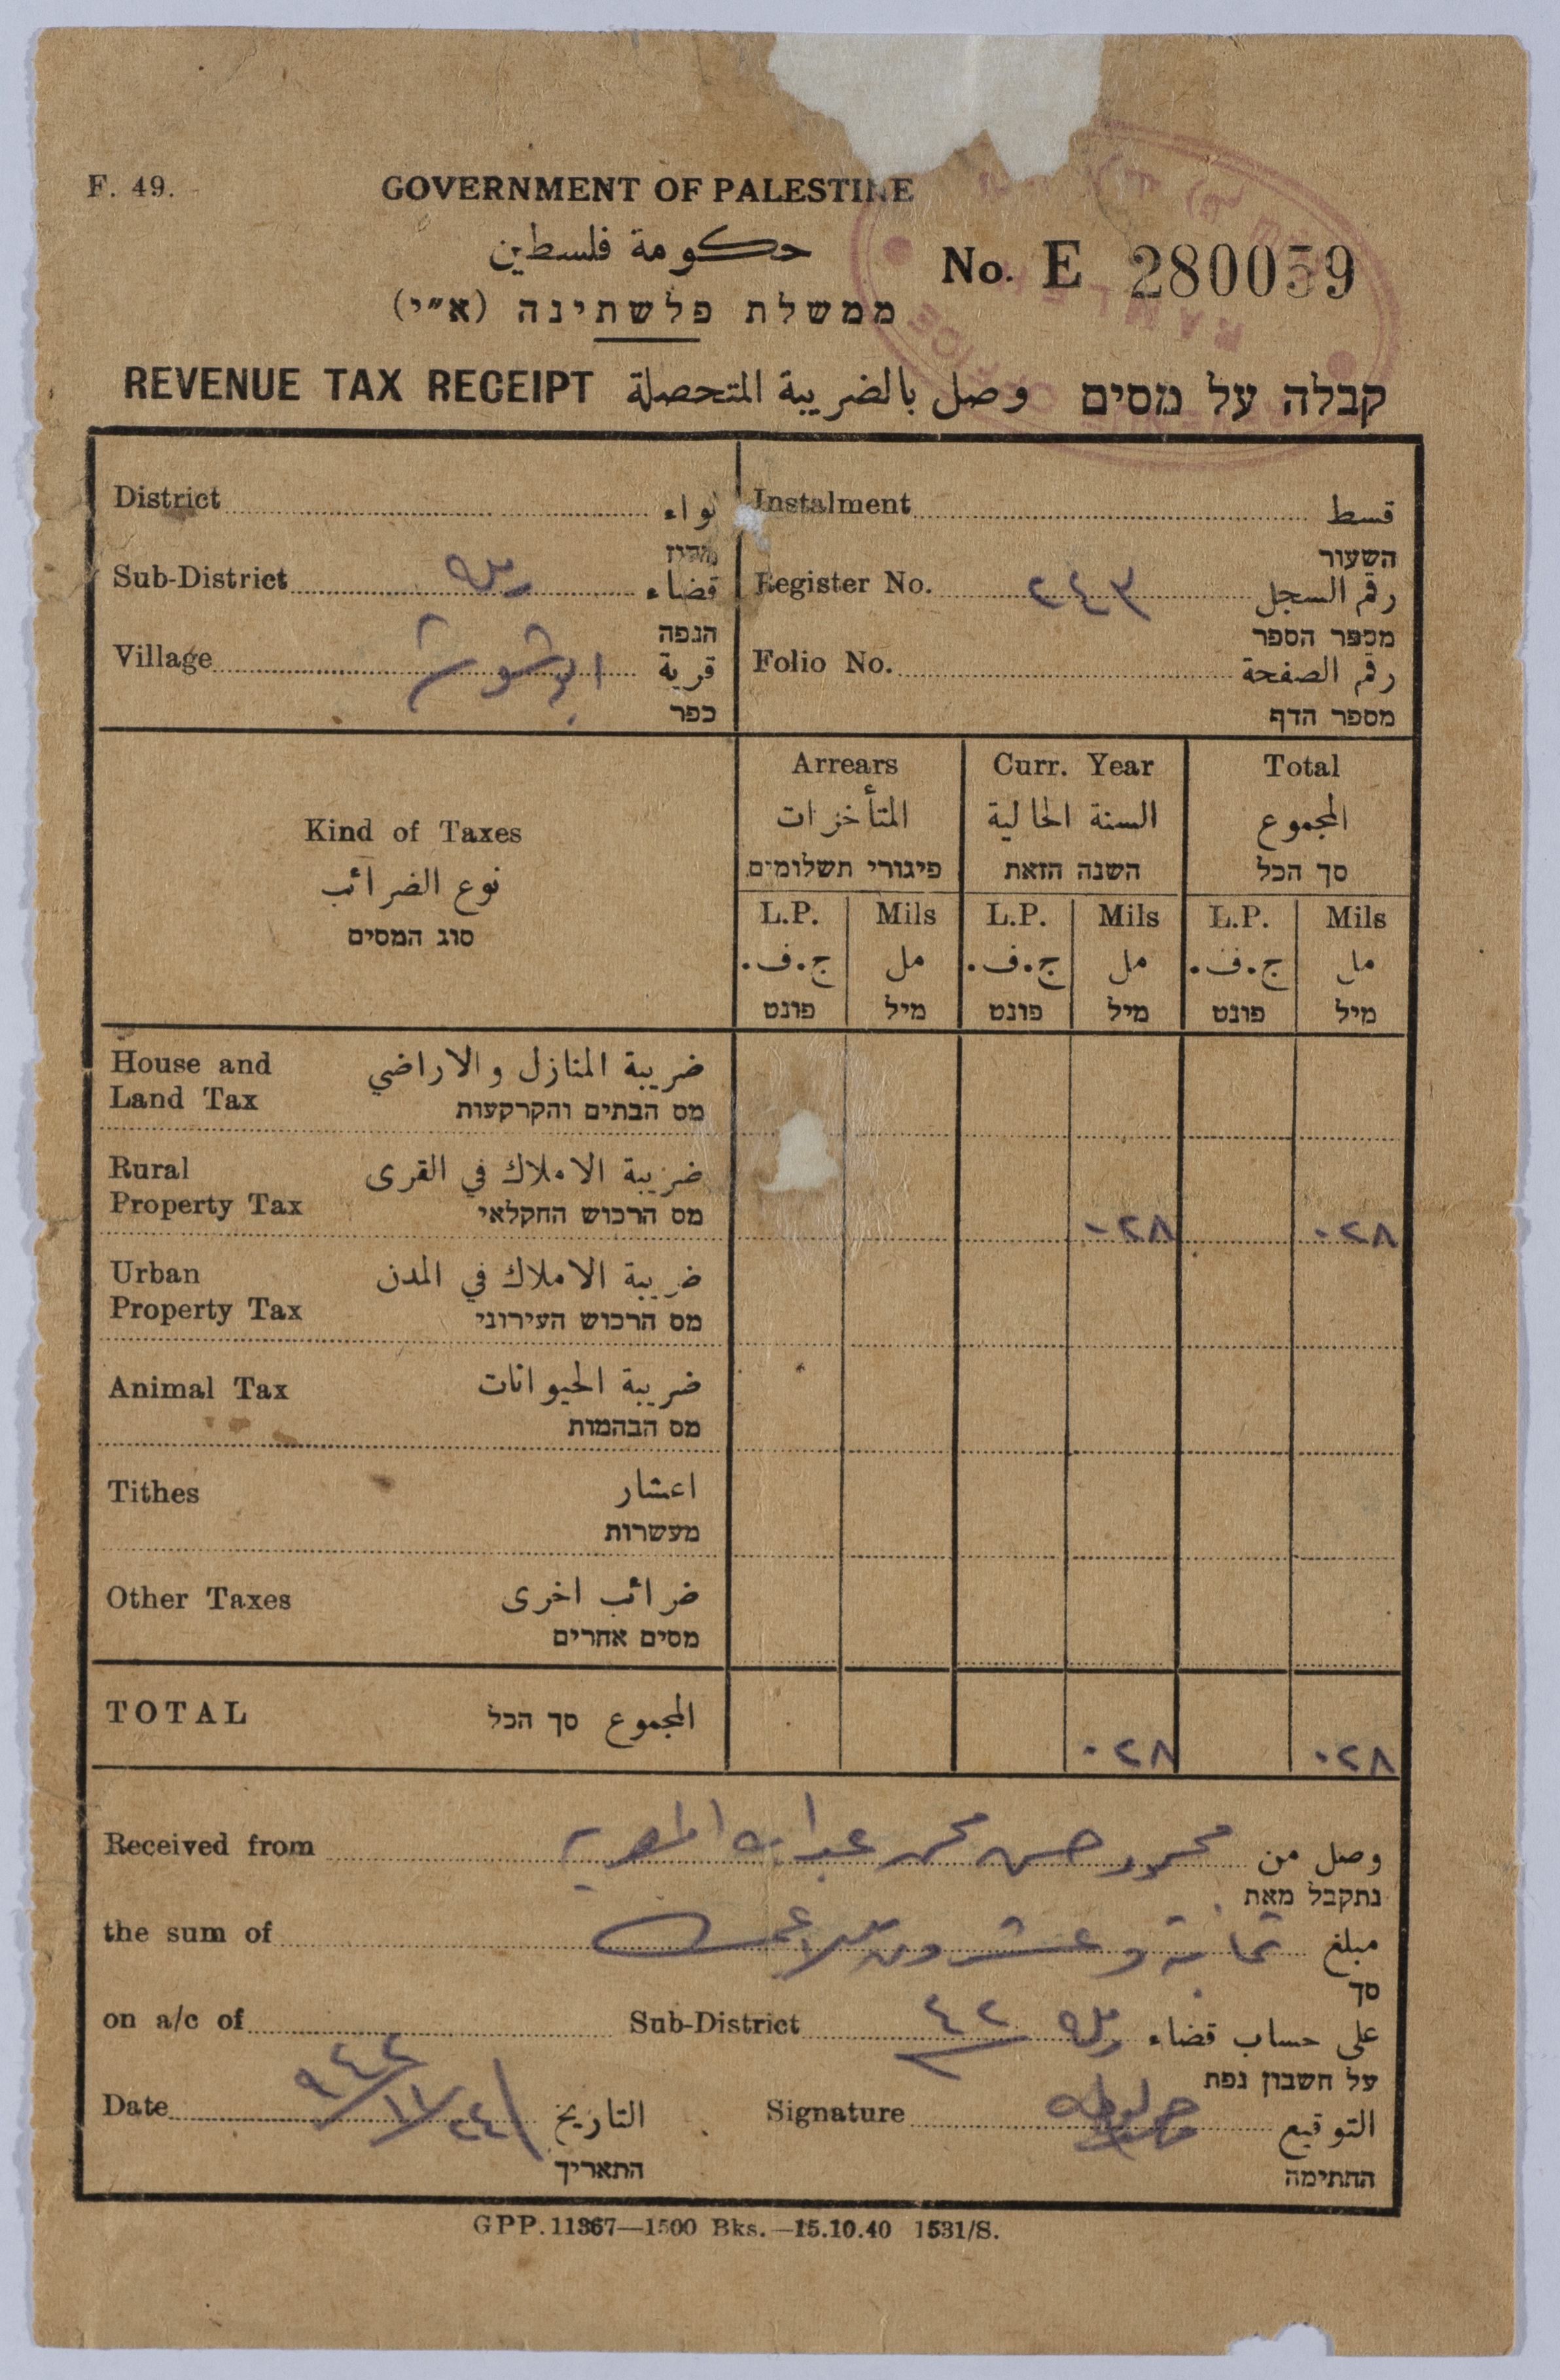 F. 49.
GOVERNMENT OF PALESTINE
حكومة فلسطين
ממשלת פלשתינה (א״י)
No. E 280059
RAMLEH
REVENUE OFFICE
REVENUE TAX RECEIPT وصل بالضريبة المتحصلة קבלה על מסים
District لواء
מחוז
Instalment قسط
השעור
Sub-District رملة قضاء
הנפה
Register No. ٢٤٣ رقم السجل
מספר הספר
Village قرية
כפר
Folio No. رقم الصفحة
מספר הדף
Kind of Taxes
نوع الضرائب
סוג המסים
Arrears
المتأخرات
פיגורי תשלומים
Curr. Year
السنة الحالية
השנה הזאת
Total
المجموع
סך הכל
L.P. Mils L.P. Mils L.P. Mils
ج.ف. مل ج.ف. مل ج.ف. مل
פונט מיל פונט מיל פונט מיל
House and Land Tax ضريبة المنازل والاراضي
מס הבתים והקרקעות
Rural Property Tax ضريبة الاملاك في القرى
מס הרכוש החקלאי
٠٢٨ ٠٢٨
Urban Property Tax ضريبة الاملاك في المدن
מס הרכוש העירוני
Animal Tax ضريبة الحيوانات
מס הבהמות
Tithes اعشار
מעשרות
Other Taxes ضرائب اخرى
מסים אחרים
TOTAL المجموع סך הכל
٠٢٨ ٠٢٨
Received from محمود حسن محمد عبد الله وصل من
נתקבל מאת
the sum of ثمانية وعشرون ملا مبلغ
סך
on a/c of Sub-District ٤٢ رملة على حساب قضاء
על חשבון נפת
Date ٢٤/١١/٩٤٢ التاريخ
התאריך
Signature التوقيع
החתימה
GPP. 11367—1500 Bks.—15.10.40 1531/S.